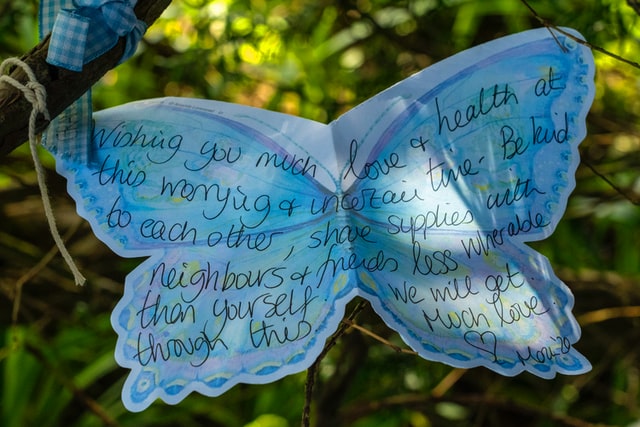 Wishing you much love & health at
this worrying & uncertain time. Be kind
to each other, share supplies with
neighbours & friends less vulnerable
than yourself we will get
though this Much love.